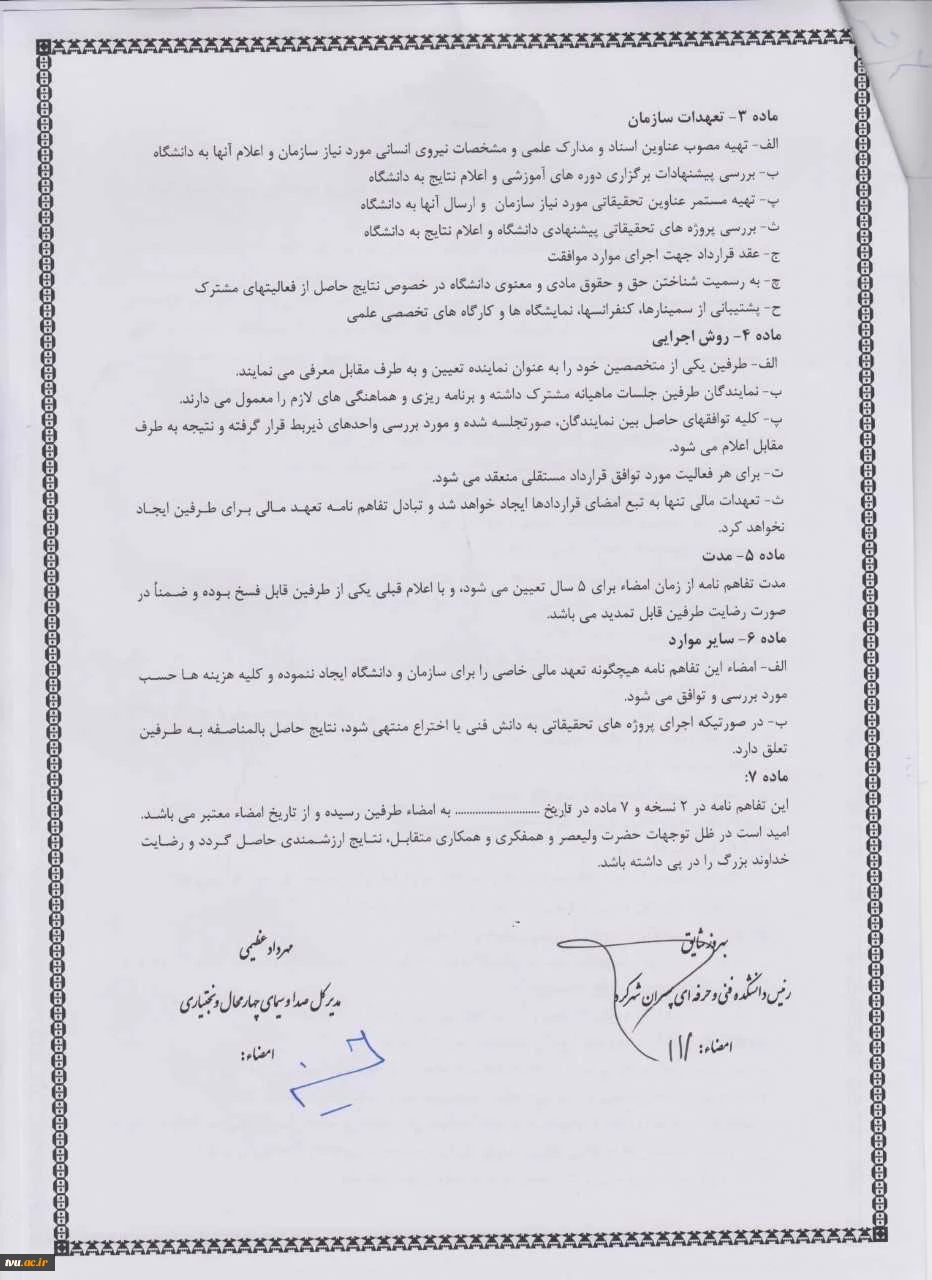 ماده ۳- تعهدات سازمان
الف- تهیه مصوب عناوین اسناد و مدارک علمی و مشخصات نیروی انسانی مورد نیاز سازمان و اعلام آنها به دانشگاه
ب- بررسی پیشنهادات برگزاری دوره های آموزشی و اعلام نتایج به دانشگاه
پ- تهیه مستمر عناوین تحقیقاتی مورد نیاز سازمان و ارسال آنها به دانشگاه
ث- بررسی پروژه های تحقیقاتی پیشنهادی دانشگاه و اعلام نتایج به دانشگاه
ج- عقد قرارداد جهت اجرای موارد موافقت
چ- به رسمیت شناختن حق و حقوق مادی و معنوی دانشگاه در خصوص نتایج حاصل از فعالیتهای مشترک
ح- پشتیبانی از سمینارها، کنفرانسها، نمایشگاه ها و کارگاه های تخصصی علمی
ماده ۴- روش اجرایی
الف- طرفین یکی از متخصصین خود را به عنوان نماینده تعیین و به طرف مقابل معرفی می نمایند.
ب- نمایندگان طرفین جلسات ماهیانه مشترک داشته و برنامه ریزی و هماهنگی های لازم را معمول می دارند.
پ- کلیه توافقهای حاصل بین نمایندگان، صورتجلسه شده و مورد بررسی واحدهای ذیربط قرار گرفته و نتیجه به طرف
مقابل اعلام می شود.
ت- برای هر فعالیت مورد توافق قرارداد مستقلی منعقد می شود.
ث- تعهدات مالی تنها به تبع امضای قراردادها ایجاد خواهد شد و تبادل تفاهم نامه تعهد مالی برای طرفین ایجاد
نخواهد کرد.
ماده ۵- مدت
مدت تفاهم نامه از زمان امضاء برای ۵ سال تعیین می شود، و با اعلام قبلی یکی از طرفین قابل فسخ بوده و ضمناً در
صورت رضایت طرفین قابل تمدید می باشد.
ماده ۶- سایر موارد
الف- امضاء این تفاهم نامه هیچگونه تعهد مالی خاصی را برای سازمان و دانشگاه ایجاد ننموده و کلیه هزینه ها حسب
مورد بررسی و توافق می شود.
ب- در صورتیکه اجرای پروژه های تحقیقاتی به دانش فنی یا اختراع منتهی شود، نتایج حاصل بالمناصفه به طرفین
تعلق دارد.
ماده ۷:
این تفاهم نامه در ۲ نسخه و ۷ ماده در تاریخ ............................ به امضاء طرفین رسیده و از تاریخ امضاء معتبر می باشد.
امید است در ظل توجهات حضرت ولیعصر و همفکری و همکاری متقابل، نتایج ارزشمندی حاصل گردد و رضایت
خداوند بزرگ را در پی داشته باشد.
بهروز حقایق
رئیس دانشکده فنی و حرفه ای پسران شهرکرد
امضاء:
مهرداد عظیمی
مدیرکل صدا و سیمای چهارمحال و بختیاری
امضاء:
tvu.ac.ir